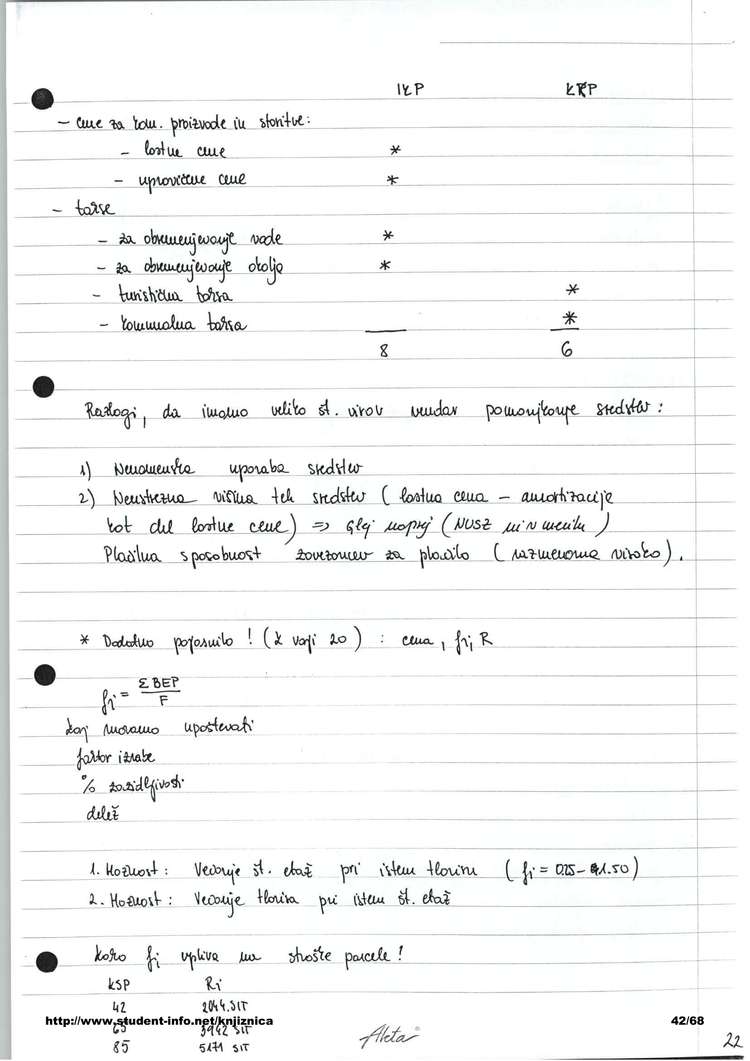 IKP KRP
- cene za kom. proizvode in storitve:
- lastne cene *
- upravičene cene *
- takse
- za obremenjevanje vode *
- za obremenjevanje okolja *
- turistična taksa *
- komunalna taksa *
8 6
Razlogi, da imamo veliko št. virov vendar pomanjkanje sredstev:
1) Nenamenska uporaba sredstev
2) Neustrezna višina teh sredstev (lastna cena - amortizacije
kot del lastne cene) => glej naprej (NUSZ ni v meniku)
Plačilna sposobnost zavezancev za plačilo (razmeroma visoko).
* Dodatno pojasnilo! (k vaji 20): cena, fi, R
fi = Σ BEP / F
kaj moramo upoštevati
faktor izrabe
% zazidljivosti
delež
1. Možnost: Večanje št. etaž pri istem tlorisu (fi = 0.25 - 1.50)
2. Možnost: Večanje tlorisa pri istem št. etaž
kako fi vpliva na stroške parcele!
KSP Ri
42 2044.SIT
http://www.student-info.net/knjiznica 42/68
65 3942 SIT
85 5171 SIT
Aleta
22